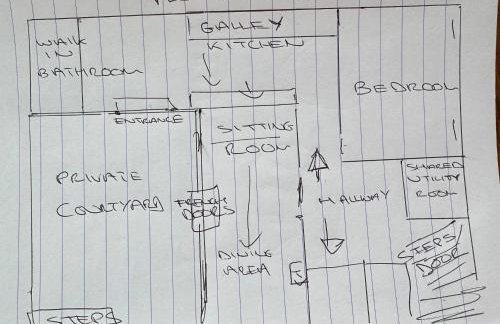 GALLEY
KITCHEN
WALK
IN
BATHROOM
BEDROOM
ENTRANCE
SITTING
ROOM
PRIVATE
COURTYARD
FRENCH
DOORS
SHARED
UTILITY
ROOM
HALLWAY
DINING
AREA
STEPS
DOOR
STEPS